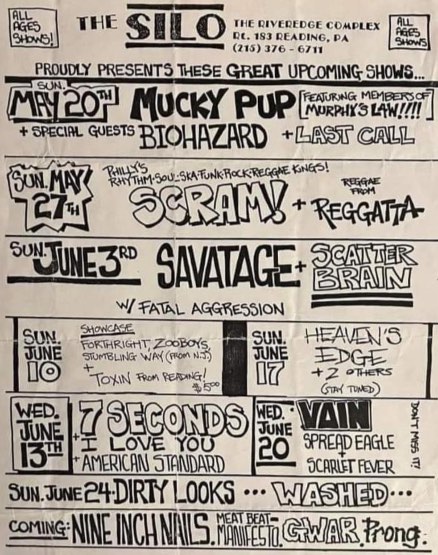 ALL AGES SHOWS!
THE SILO
THE RIVEREDGE COMPLEX
RT. 183 READING, PA
(215) 376-6711
ALL AGES SHOWS
PROUDLY PRESENTS THESE GREAT UPCOMING SHOWS...
SUN. MAY 20TH
MUCKY PUP
[FEATURING MEMBERS OF MURPHY'S LAW!!!!]
+ SPECIAL GUESTS BIOHAZARD + LAST CALL
SUN. MAY 27TH
PHILLY'S RHYTHM-SOUL-SKA-FUNK-ROCK-REGGAE KINGS!
SCRAM! +
REGGAE FROM
REGGATTA
SUN. JUNE 3RD
SAVATAGE + SCATTER BRAIN
W/ FATAL AGGRESSION
SUN. JUNE 10
SHOWCASE
FORTHRIGHT, ZOOBOYS,
STUMBLING WAY (FROM N.J.)
+
TOXIN FROM READING!
$5.00
SUN. JUNE 17
HEAVEN'S EDGE
+ 2 OTHERS
(STAY TUNED)
WED. JUNE 13TH
7 SECONDS
+ I LOVE YOU
+ AMERICAN STANDARD
WED. JUNE 20
VAIN
SPREAD EAGLE
+
SCARLET FEVER
DON'T MISS IT!
SUN. JUNE 24 · DIRTY LOOKS ... WASHED...
COMING: NINE INCH NAILS. MEAT BEAT MANIFESTO. GWAR. Prong.